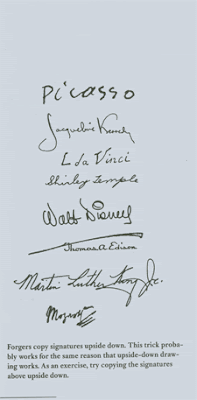 Picasso
Jacqueline Kennedy
L da Vinci
Shirley Temple
Walt Disney
Thomas A. Edison
Martin Luther King Jr.
Mozart
Forgers copy signatures upside down. This trick proba-
bly works for the same reason that upside-down draw-
ing works. As an exercise, try copying the signatures
above upside down.